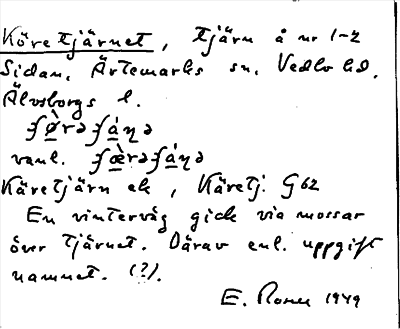 Köretjärnet, tjärn å nr 1-2
Sidan, Ärtemarks sn, Vedbo hd,
Älvsborgs l.
ʃø̀rəʃä́ŋə
vanl. ʃæ̀rəʃä́ŋə
Käretjärn ek, Käretj. G62
En vinterväg gick via mossar
över tjärnet. Därav enl. uppgift
namnet. (?).
E. Rosell 1949